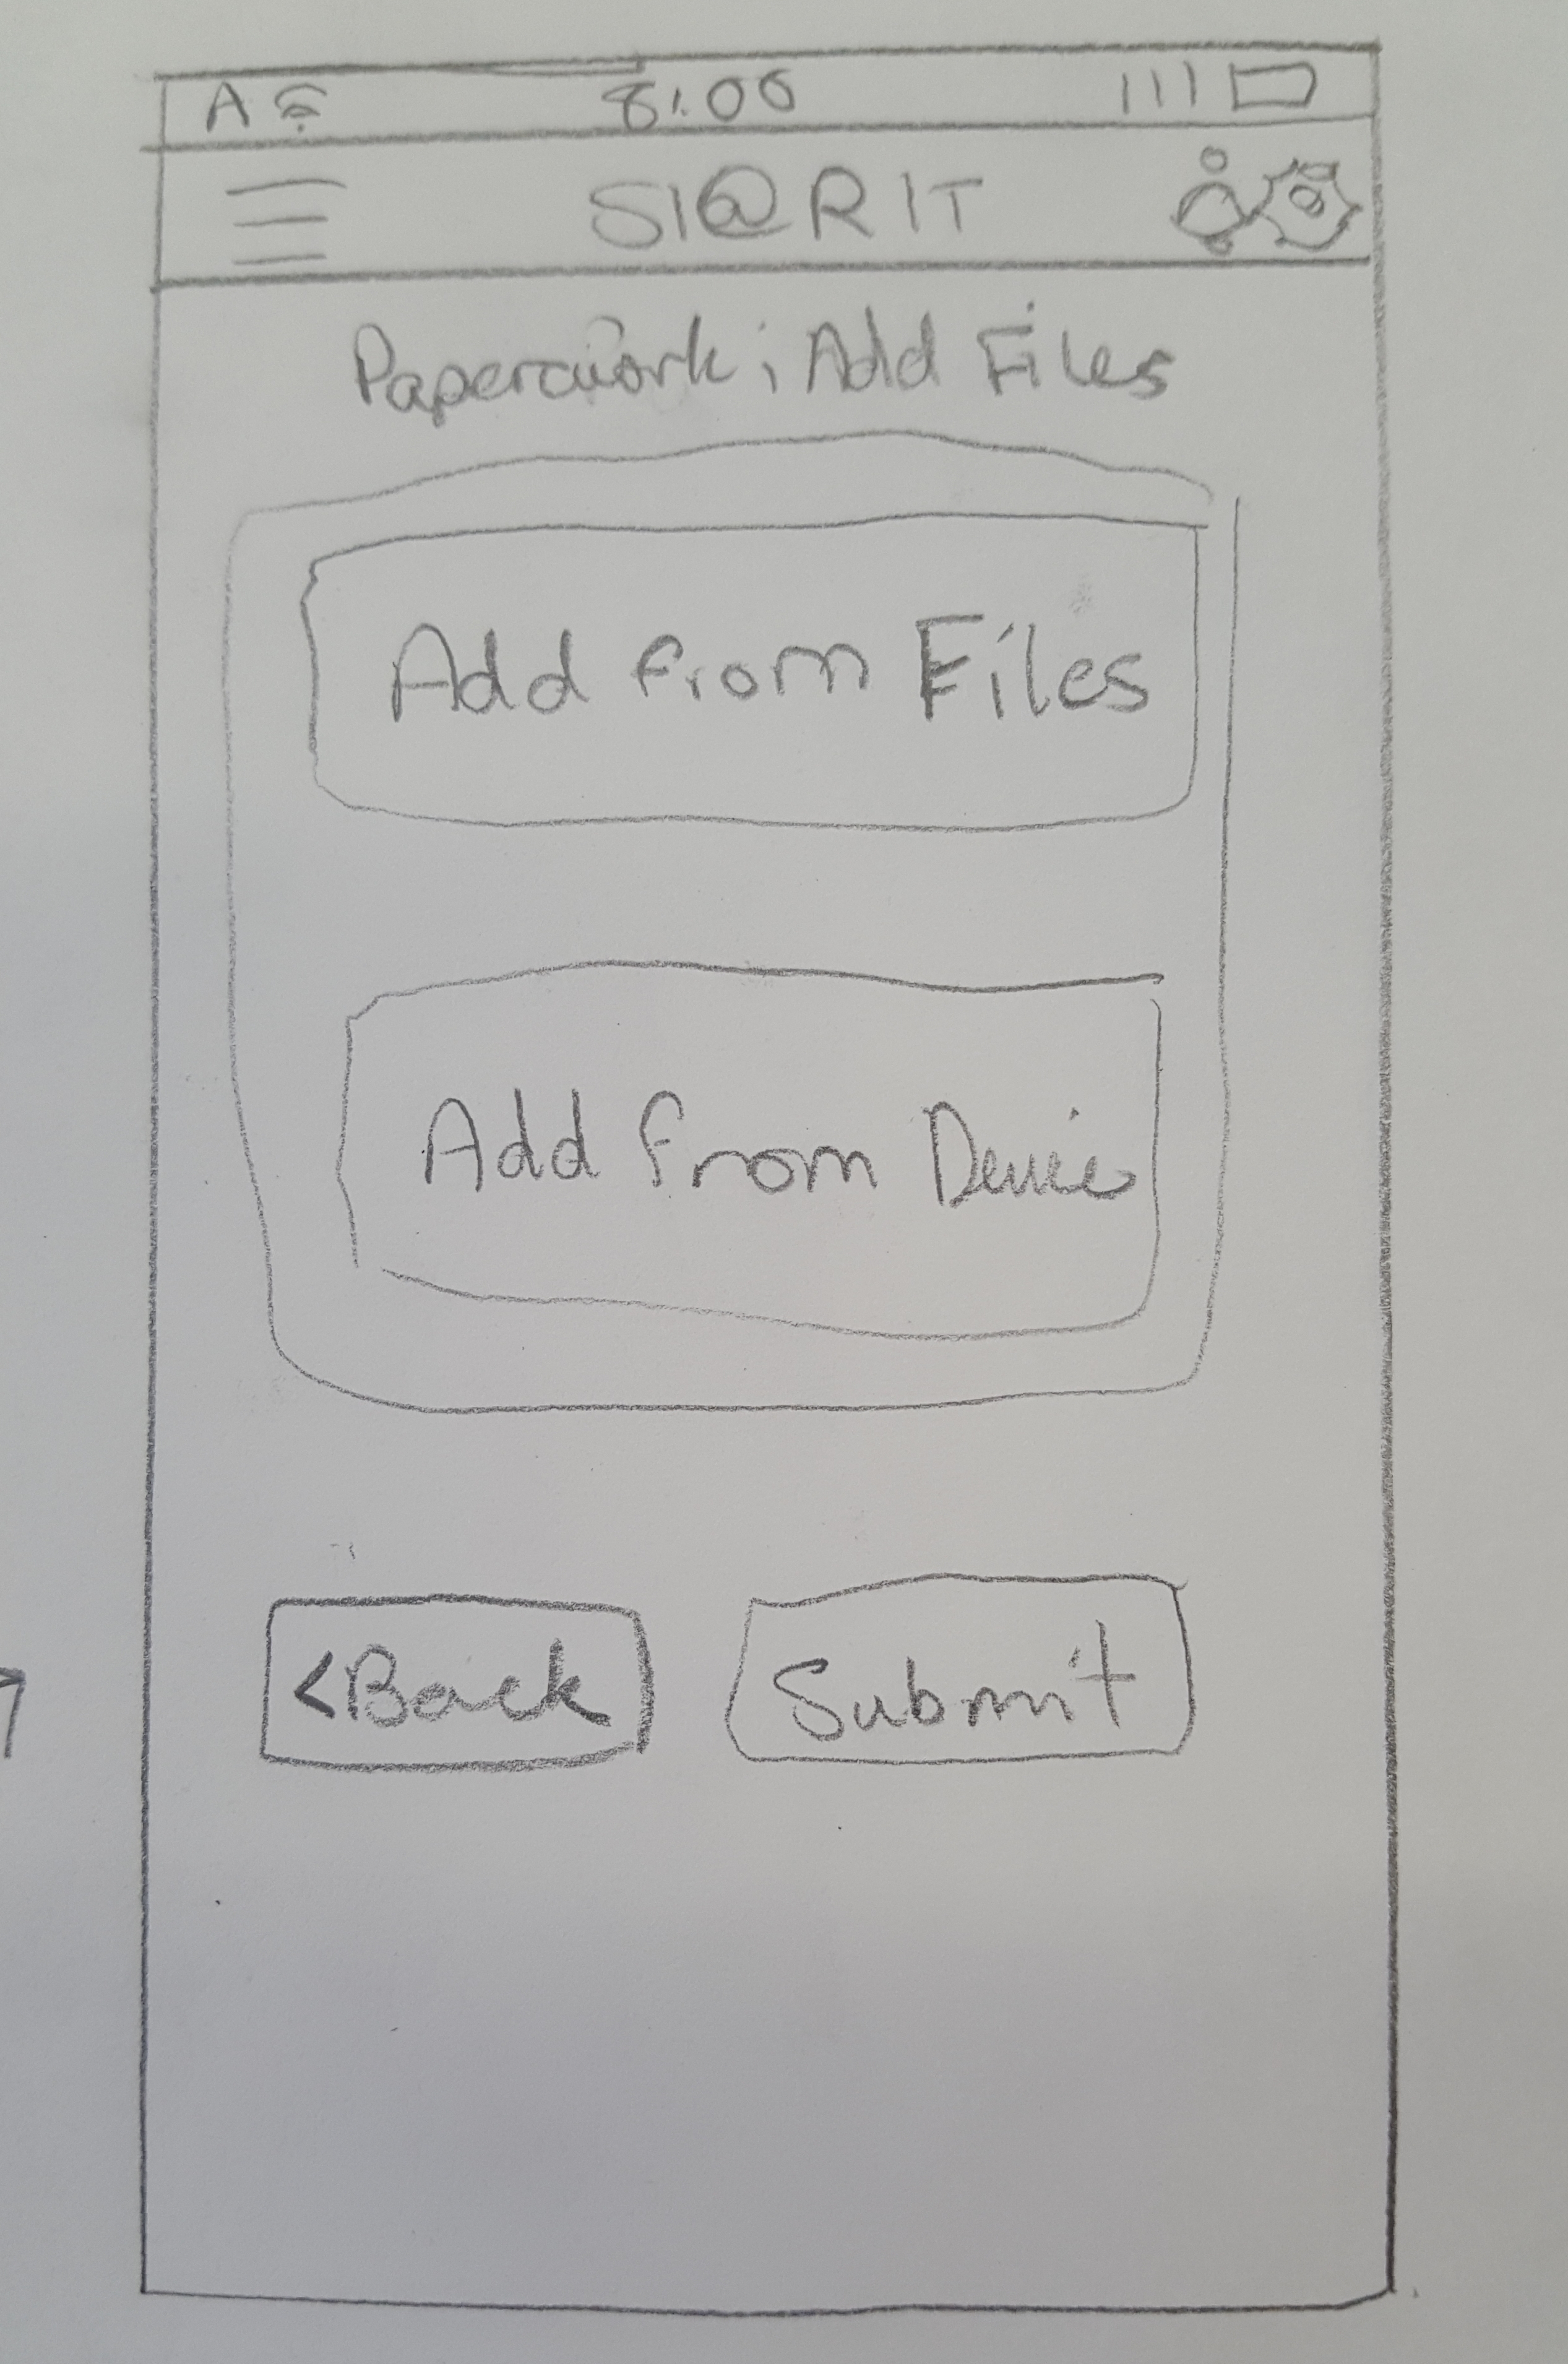 A 8:00
SI@RIT
Paperwork: Add Files
Add from Files
Add from Device
<Back Submit